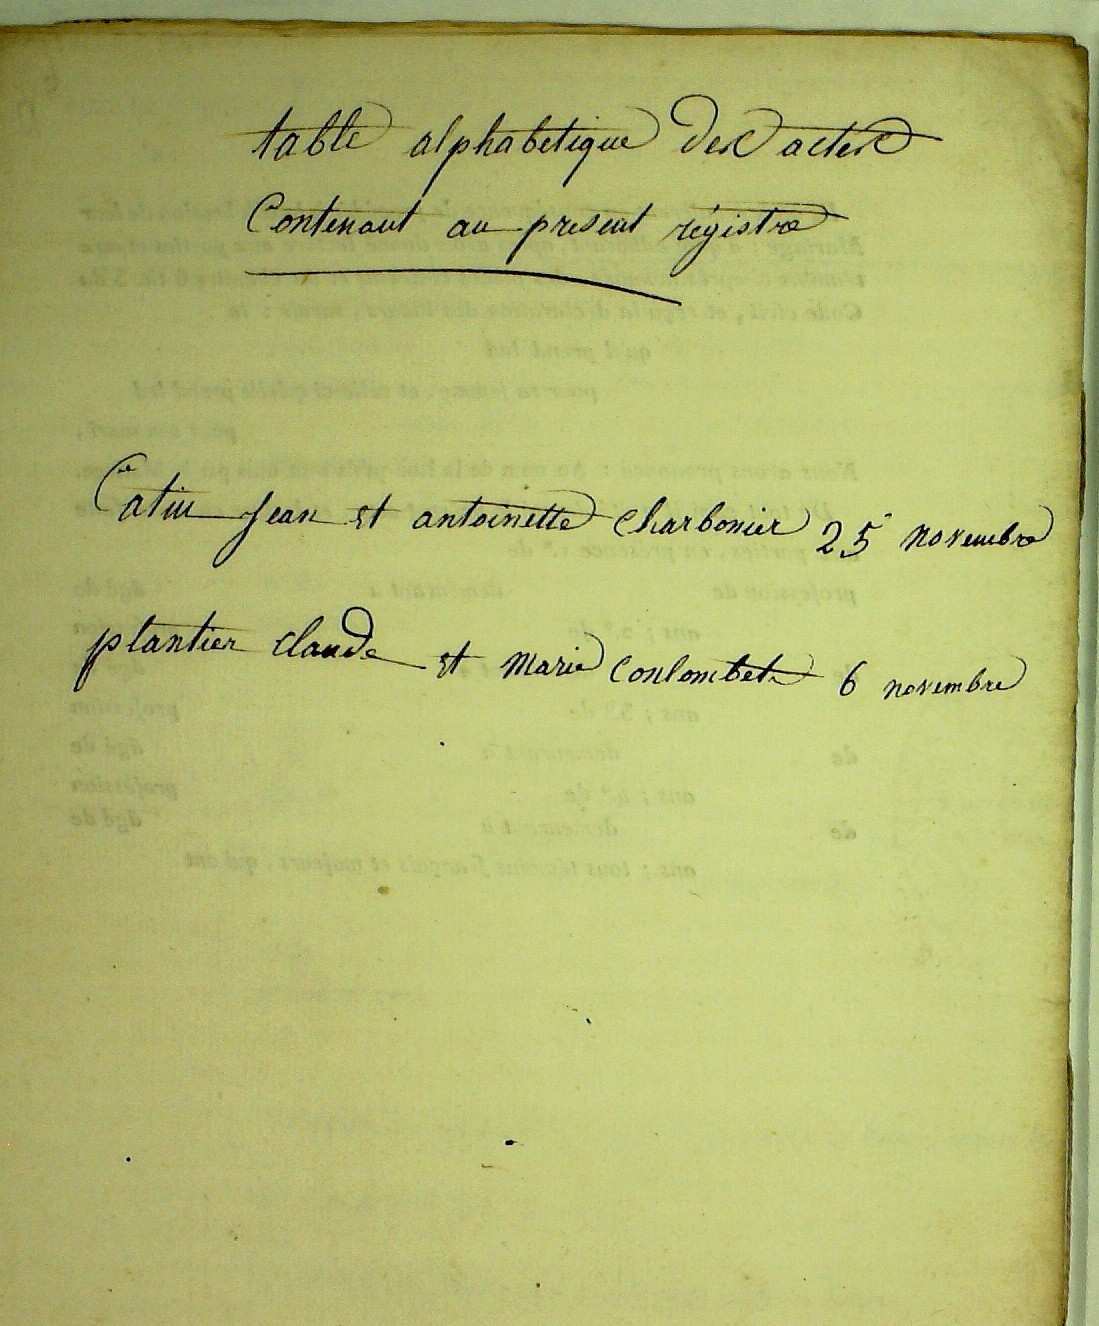 table alphabetique des actes
Contenant au present régistre
Catin Jean et antoinette charbonier 25 novembre
plantier claude et marie Coulombet 6 novembre